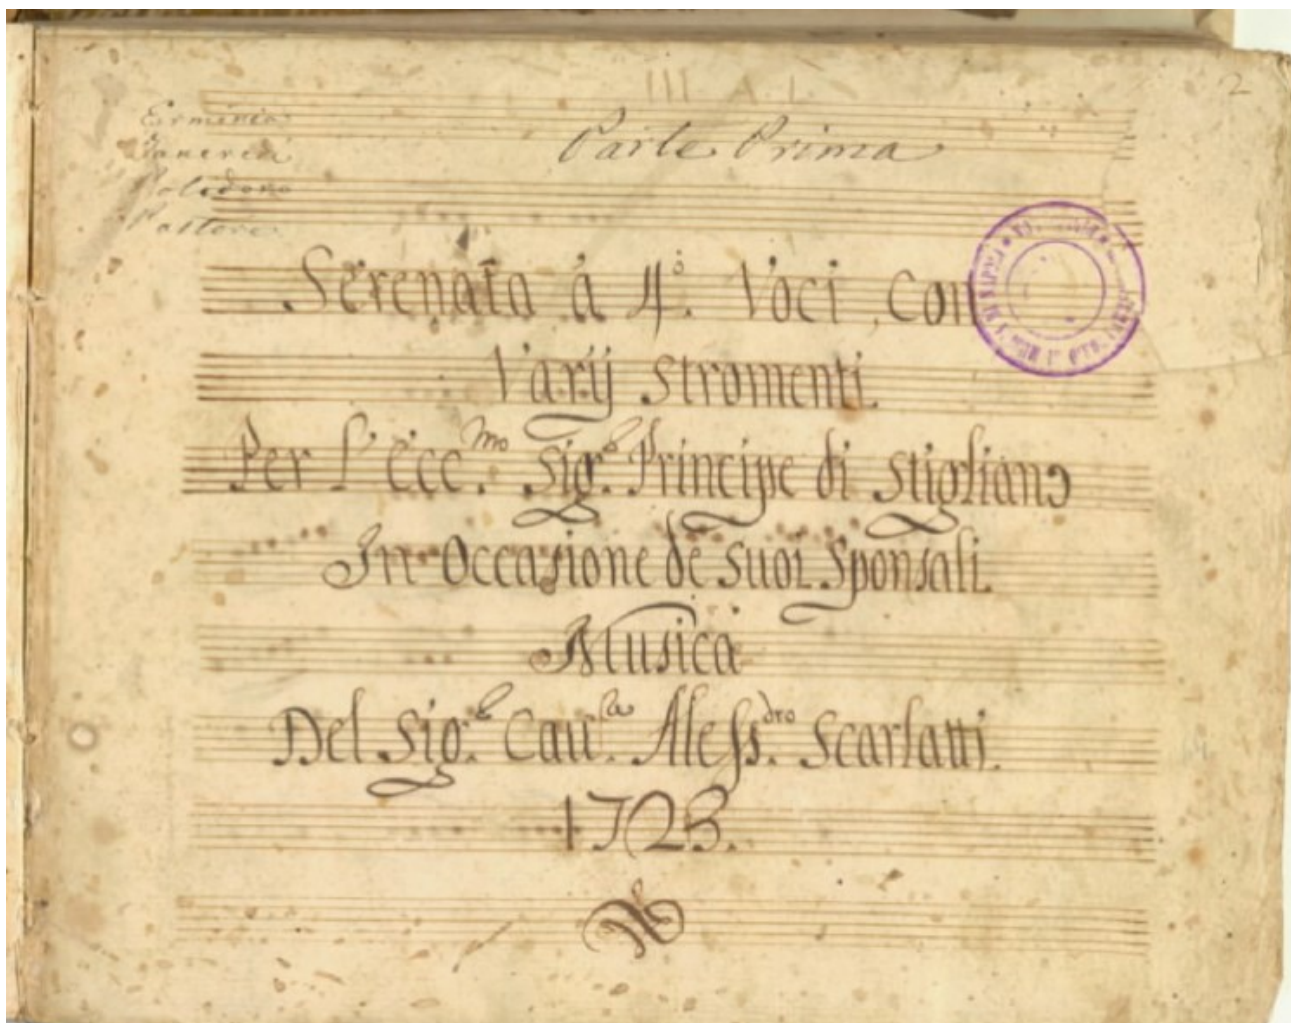 III A I
2
Erminia
Tancredi
Polidoro
Pastore
Parte Prima
Serenata à 4.º Voci, Con
Varij Stromenti.
Per L' Ecc.mo Sig.e Principe di Stigliano
In Occasione de Suoi Sponsali.
Musica
Del Sig.e Cau.re Aless.dro Scarlatti.
1723.